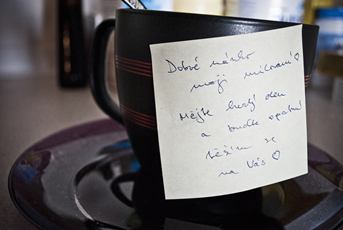 Dobré ránko
moji milovaní ♡
Mějte hezký den
a buďte opatrní
těším se
na Vás ♡